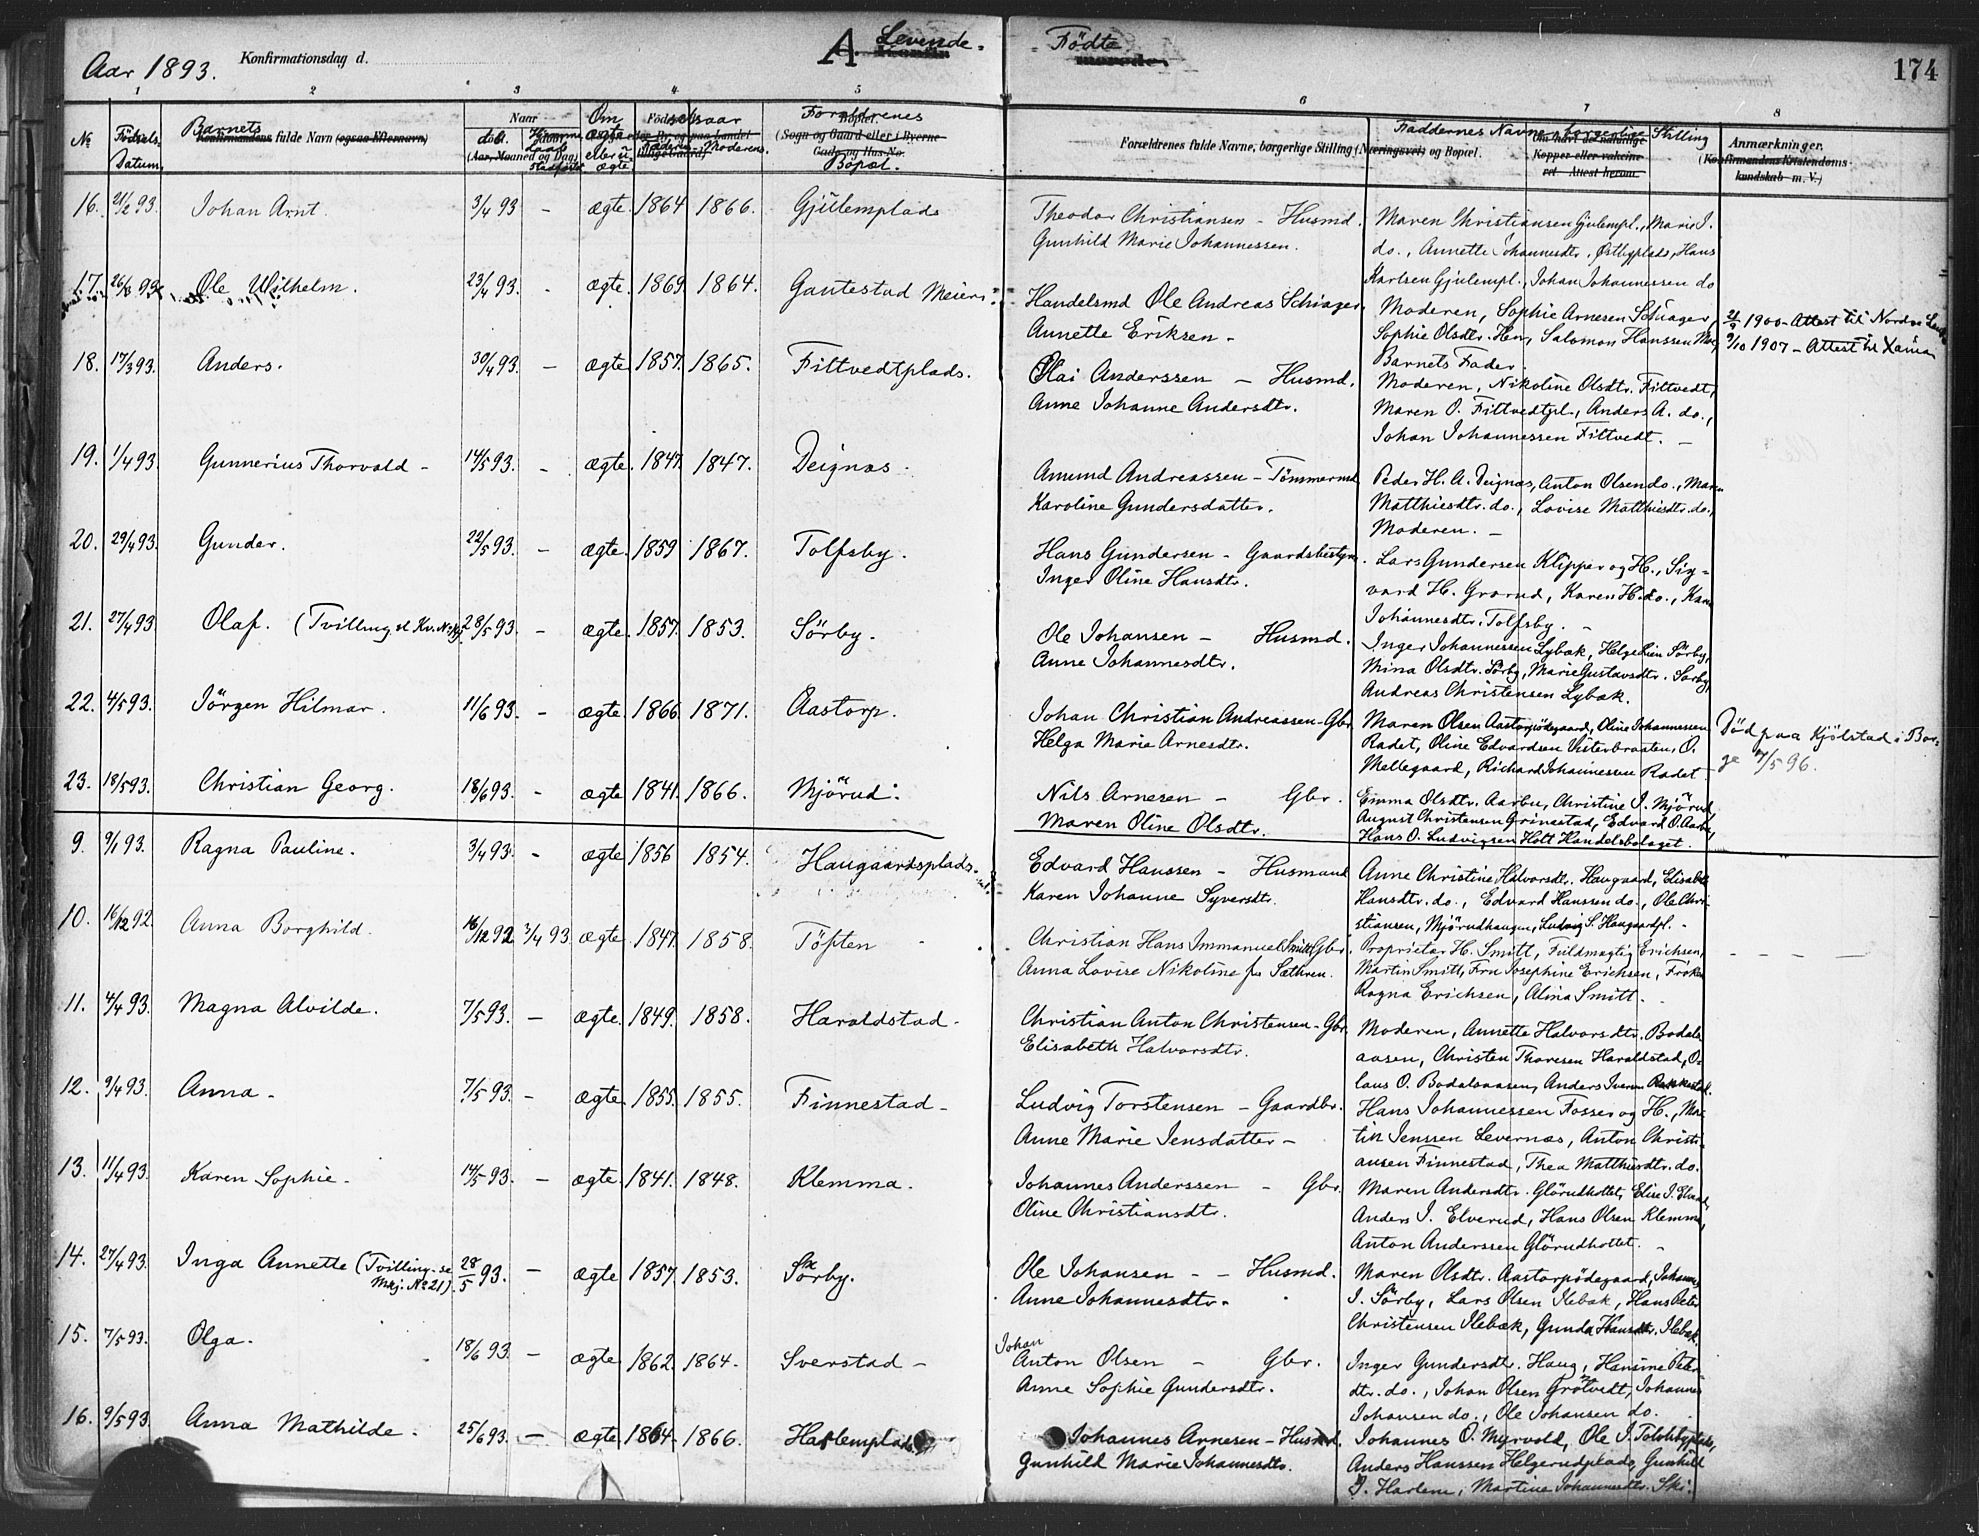 Aar 1893.
Konfirmationsdag d.
A. Levende
Fødte
174
1 2 3 4 5 6 7 8
№ Fødsels Datum.
Barnets fulde Navn (ogsaa Efternavn)
Naar
død. Hjemmedøbt
(Aar, Maaned og Dag) stadfæstet
Om ægte eller uægte.
Fødselsaar
Faderens Moderens
Forældrenes
(Sogn og Gaard eller i Byerne Gade og Hus-No.
Bopæl.
Forældrenes fulde Navne, borgerlige Stilling (Næringsvei) og Bopæl.
Faddernes Navne, borgerlige Stilling
Om havt de naturlige Kopper eller vaccineret. Attest herom.
Anmærkninger.
(Konfirmandens Kristendoms-kundskab m. V.)
16. 21/2 93. Johan Arnt. 3/4 93 - ægte 1864 1866. Gjillemplads Theodor Christiansen - Husmd. Maren Christiansen Gjulempl., Marie I.
Gunhild Marie Johannessen. do., Annette Johannesdtr. Østbyplads, Hans
Karlsen Gjulempl., Johan Johannessen do
17. 26/3 93. Ole Wilhelm. 23/4 93. - ægte. 1869 1864. Gautestad Meieri. Handelsmd Ole Andreas Schiager Moderen, Sophie Arnesen Schiager,
Annette Eriksen - Sophie Olsdtr. Hen, Salomon Hanssen
Barnets Fader.
21/9 1900 - Attest til Nordre
9/10 1907 - Attest til
18. 17/3 93. Anders. 30/4 93. - ægte 1857. 1865. Filtvedtplads. Olai Anderssen - Husmd. Moderen, Nikoline Olsdtr. Filtvedt,
Anne Johanne Andersdtr. Maren O. Filtvedtpl., Anders A. do.,
Johan Johannessen Filtvedt. -
19. 1/4 93. Gunnerius Thorvald - 14/5 93. - ægte. 1847. 1847. Deignæs. Amund Andreassen - Tømmermd Peder H. A. Deignæs, Anton Olsen do., Maren
Karoline Gundersdatter. Matthiesdtr. do., Lovise Matthiesdtr. do.,
Moderen. -
20. 29/4 93. Gunder. 22/5 93. - ægte. 1859 1867. Tolfsby. Hans Gundersen - Gaardsbestyr. Lars Gundersen Klipper og H., Sig-
Inger Oline Hansdtr. vard H. Grorud, Karen H. do., Karen
Johannesdtr. Tolfsby. -
21. 27/4 93 Olaf. (Tvilling, se Kv. No 14). 28/5 93. - ægte. 1857. 1853. Sörby. Ole Johansen - Husmd. Inger Johannessen Lybæk, Helge Sörby,
Anne Johannesdtr. Mina Olsdtr. Sörby, Marie Gustavsdtr. Sörby,
Andreas Christensen Lybæk.
22. 4/5 93. Jörgen Hilmar. 11/6 93. - ægte. 1866. 1871. Aastorp. Johan Christian Andreassen - Gbr. Maren Olsen Aastorpödegaard, Oline Johannessen
Helga Marie Arnesdtr. Radet, Oline Edvardsen Visterbraaten, O.
Mellegaard, Richard Johannessen Radet.
Död paa Kjölstad i Bor-
ge 7/5 96.
23. 18/5 93. Christian Georg. 18/6 93. - ægte 1841. 1866. Mjörud. Nils Arnesen - Gbr. Emma Olsdtr. Aarbu, Christine I. Mjörud,
Maren Oline Olsdtr. August Christensen Grinestad, Edvard O. Aarbu,
Hans O. Ludvigsen Holt Handelsbolaget.
9. 9/1 93. Ragna Pauline. 3/4 93. - ægte 1856 1854. Haugaardsplads. Edvard Hanssen - Husmand Anne Christine Halvorsdtr. Haugaard, Elisabeth
Karen Johanne Syversdtr. Hansdtr. do., Edvard Hanssen do., Ole Chri-
stiansen, Mjörudhaugen, Ludvig S. Haugaardpl. -
10. 16/12 92 Anna Borghild. 16/12 92 3/4 93 ægte 1847. 1858. Töften Christian Hans Immanuel Smitt Gbr. Proprietær H. Smitt, Fuldmægtig Erichsen,
Anna Lovise Nikoline f. Sæthren. Martin Smitt, Fru Josephine Erichsen, Frøken
Ragna Erichsen, Alina Smitt. -
11. 4/4 93. Magna Alvilde. 7/5 93. - ægte 1849. 1858. Haraldstad - Christian Anton Christensen - Gbr. Moderen, Annette Halvorsdtr. Bodals-
Elisabeth Halvorsdtr. aasen, Christen Thoresen Haraldstad, O-
laus O. Bodalsaasen, Anders Iversen Rakkestad.
12. 9/4 93. Anna - 7/5 93. - ægte. 1855. 1855. Finnestad - Ludvig Torstensen - Gaardbr. Hans Johannessen Fosser og H., Mar-
Anne Marie Jensdatter - tin Jenssen Levernæs, Anton Christi-
ansen Finnestad, Thea Matthisdtr. do.
13. 11/4 93. Karen Sophie. 14/5 93. - ægte. 1841. 1848. Klemma. Johannes Anderssen - Gbr. Maren Andersdtr. Glörudholtet, Elise I. Elverud,
Oline Christiansdtr. Anders I. Elverud, Hans Olsen Klemma,
Anton Anderssen Glörudholtet. -
14. 27/4 93. Inga Annette (Tvilling - se 28/5 93. - ægte 1857. 1853. Sörby. Ole Johansen - - Husmd. Maren Olsdtr. Aastorpödegaard, Johannes
Mkj. No 21). Anne Johannesdtr. I. Sörby, Lars Olsen Ilebæk, Hans Peter
Christensen Ilebæk, Gunda Hansdtr. Ilebæk.
15. 7/5 93. Olga. 18/6 93. - ægte 1862. 1864. Sverstad - Johan Anton Olsen - Gbr. Inger Gundersdtr. Haug, Hansine Peter-
Anne Sophie Gundersdtr. dtr. do., Johan Olsen Grötvedt, Johannes
Johansen do., Ole Johansen do.
16. 9/5 93. Anna Mathilde. 25/6 93. - ægte. 1864. 1866. Harlemplads Johannes Arnesen - Husmd. Johannes O. Myrvold, Ole I. Tolfsbyplads,
Gunhild Marie Johannesdtr. Anders Hanssen Helgerudplads, Gunhild
I. Harlem, Martine Johannesdtr. Ski.